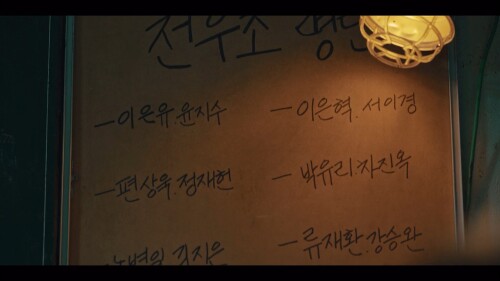 전우조 명단
-이은유.윤지수
-이은혁.서이경
-편상욱.정재헌
-박유리.차진옥
김지은
-류재환.강승완